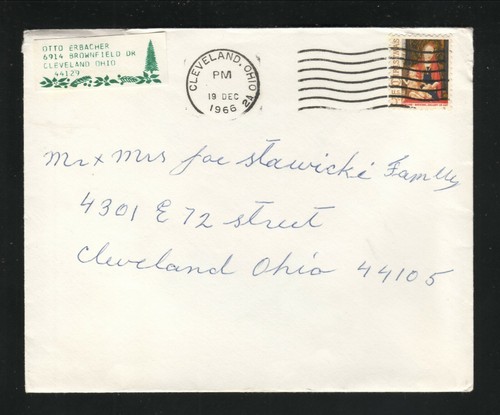 OTTO ERBACHER
6914 BROWNFIELD DR
CLEVELAND OHIO
44129
CLEVELAND, OHIO 24
PM
19 DEC
1966
Mr + Mrs Joe Stawicki Family
4301 E 72 street
Cleveland Ohio 44105